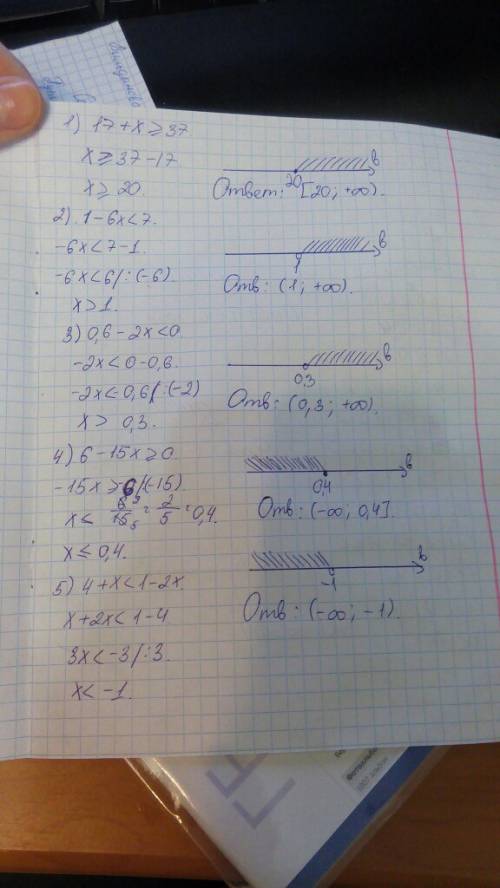 1) 17+x≥37
x≥37-17
x≥20.
20
в
Ответ: [20; +∞).
2) 1-6x<7.
-6x<7-1.
-6x<6/:(-6).
x>1.
1
в
Отв: (1; +∞).
3) 0,6-2x<0.
-2x<0-0,6.
-2x<0,6/:(-2)
x> 0,3.
0,3
в
Отв: (0,3; +∞).
4) 6-15x≥0
-15x≥-6/:(-15).
x≤ 6/15 = 2/5 = 0,4.
x≤0,4.
0,4
в
Отв: (-∞; 0,4].
5) 4+x<1-2x.
x+2x<1-4
3x<-3/:3.
x<-1.
-1
в
Отв: (-∞; -1).